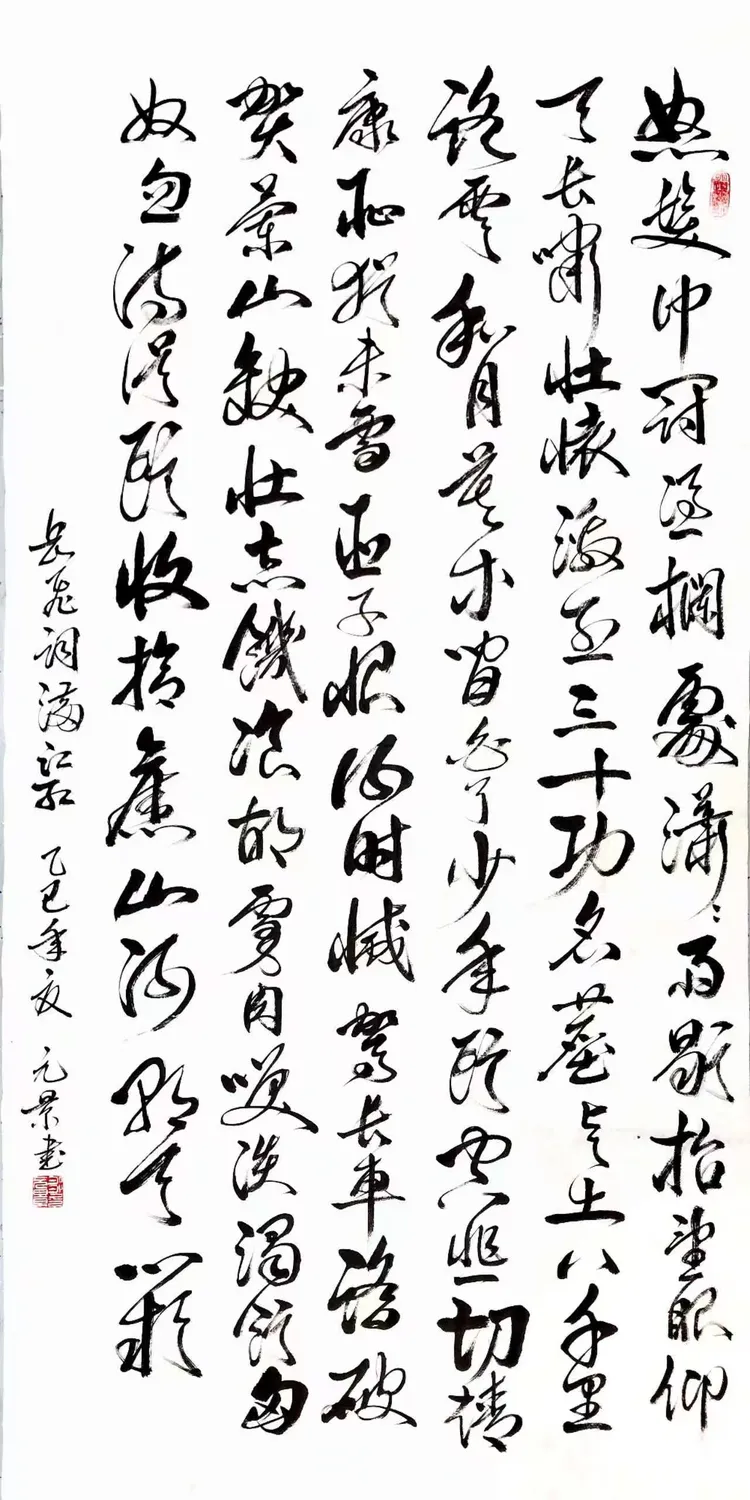 怒髮冲冠憑欄處瀟瀟雨歇抬望眼仰
天長嘯壯懷激烈三十功名塵與土八千里
路雲和月莫等閒白了少年頭空悲切靖
康恥猶未雪臣子恨何時滅駕長車踏破
賀蘭山缺壯志饑湌胡虜肉笑談渴飲匈
奴血待從頭收拾舊山河朝天闕
岳飛詞滿江紅 乙巳年夏 元景書